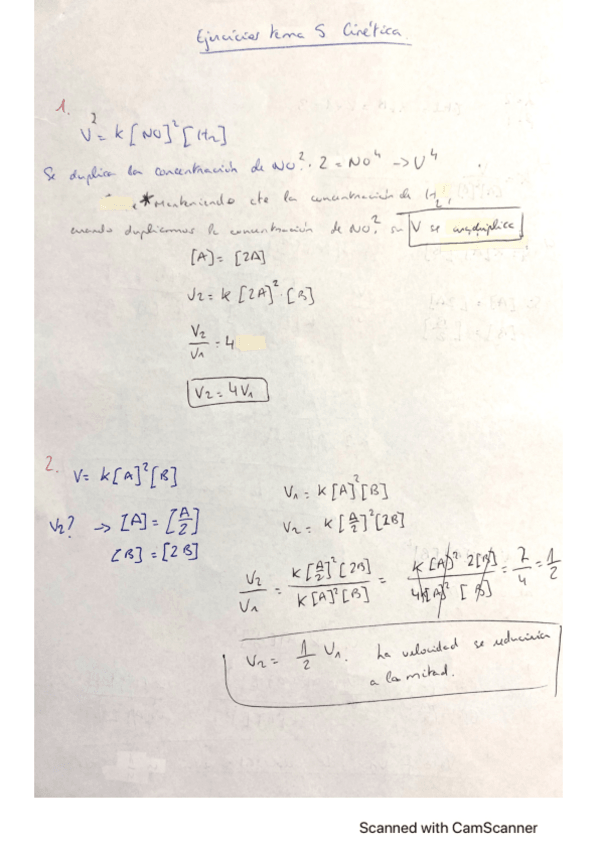 Ejercicios tema 5 Cinética
1.
V² = k [NO]² [H₂]
Se duplica la concentración de NO². 2 = NO⁴ → V⁴
* Manteniendo cte la concentración de H₂,
cuando duplicamos la concentración de NO², su V se cuadruplica
[A] = [2A]
V₂ = k [2A]² · [B]
V₂/V₁ = 4
V₂ = 4V₁
2.
V = k [A]² [B]
V₂? → [A] = [A/2]
[B] = [2B]
V₁ = k [A]² [B]
V₂ = k [A/2]² [2B]
V₂/V₁ = k [A/2]² [2B] / k [A]² [B] = k [A]² · 2[B] / 4k[A]² [B] = 2/4 = 1/2
V₂ = 1/2 V₁. La velocidad se reduciría
a la mitad.
Scanned with CamScanner